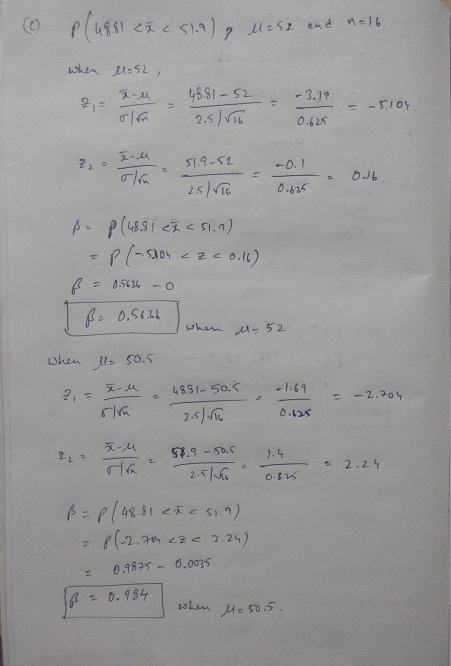 (c) P(48.81 < x̄ < 51.9), μ=52 and n=16.
when μ=52,
z₁ = x̄-μ / σ/√n = 48.81-52 / 2.5/√16 = -3.19 / 0.625 = -5.104
z₂ = x̄-μ / σ/√n = 51.9-52 / 2.5/√16 = -0.1 / 0.625 = 0.16
β = P(48.81 < x̄ < 51.9)
= P(-5.104 < z < 0.16)
β = 0.5636 - 0
β = 0.5636 when μ=52
when μ= 50.5
z₁ = x̄-μ / σ/√n = 48.81-50.5 / 2.5/√16 = -1.69 / 0.625 = -2.704
z₂ = x̄-μ / σ/√n = 51.9-50.5 / 2.5/√16 = 1.4 / 0.625 = 2.24
β = P(48.81 < x̄ < 51.9)
= P(-2.704 < z < 2.24)
= 0.9875 - 0.0035
β = 0.984 when μ=50.5.